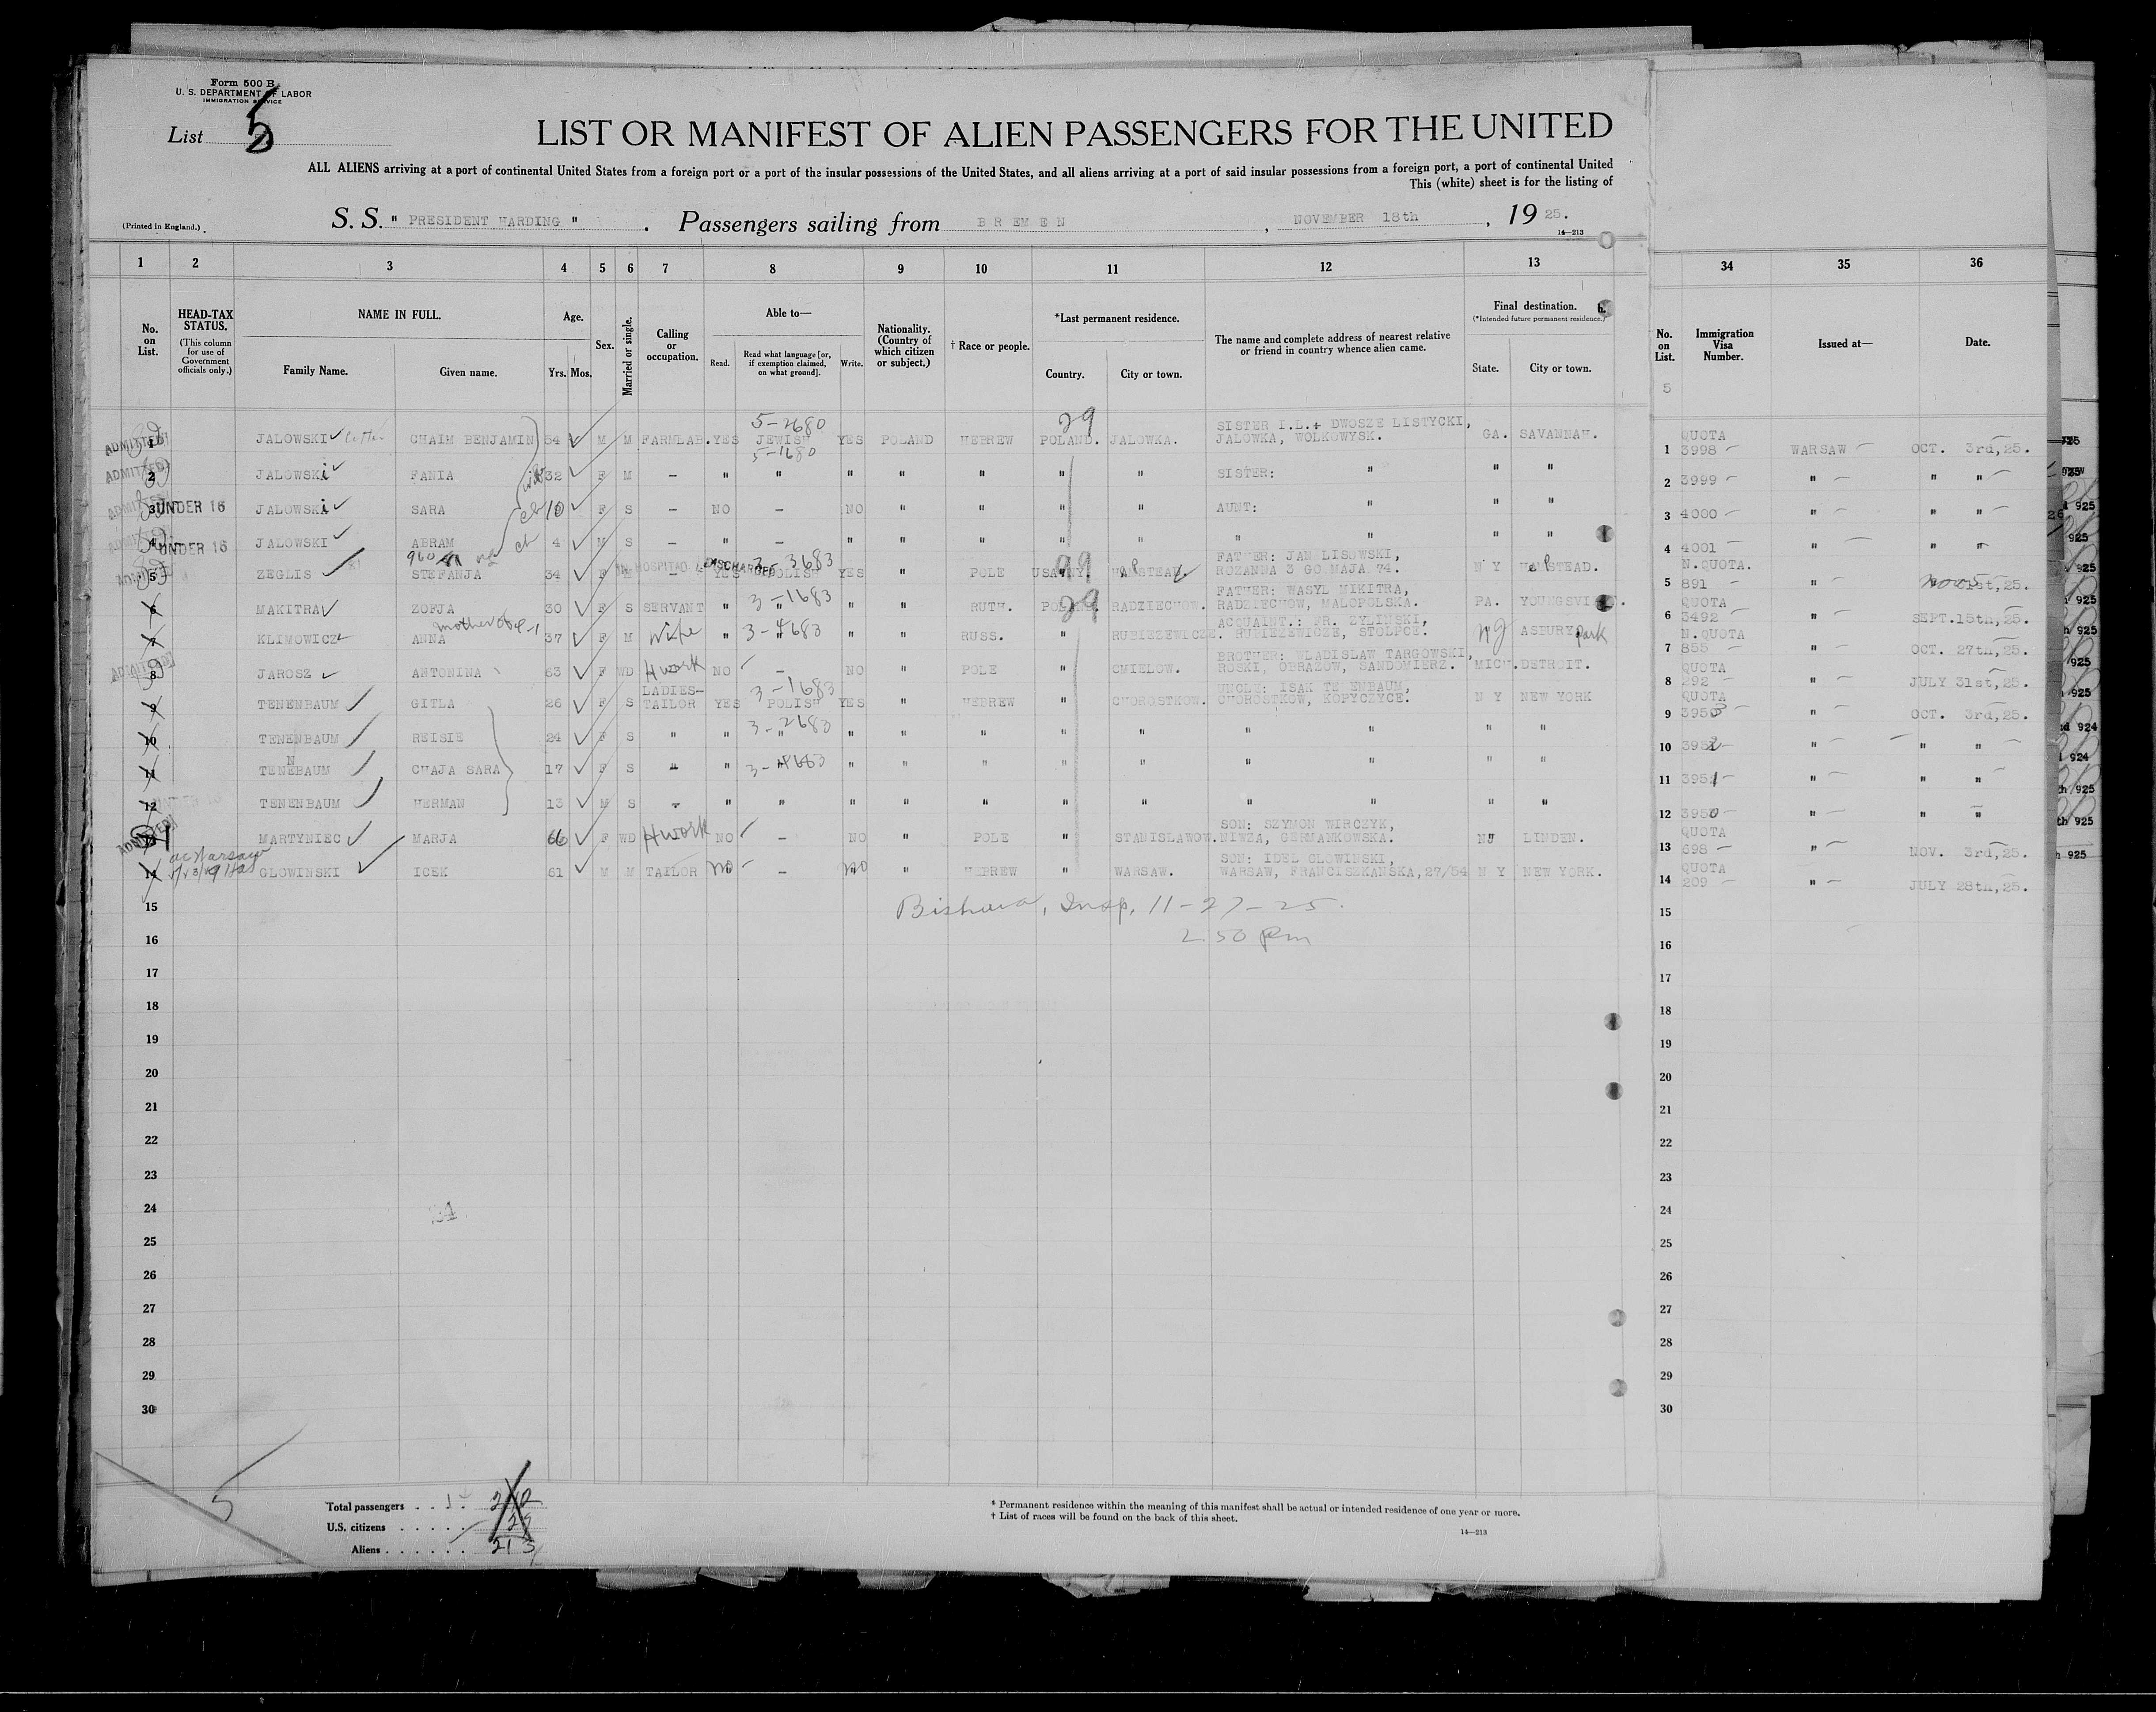 Form 500 B
U. S. DEPARTMENT OF LABOR
IMMIGRATION SERVICE
List 5
LIST OR MANIFEST OF ALIEN PASSENGERS FOR THE UNITED
ALL ALIENS arriving at a port of continental United States from a foreign port or a port of the insular possessions of the United States, and all aliens arriving at a port of said insular possessions from a foreign port, a port of continental United
This (white) sheet is for the listing of
(Printed in England.)
S. S. " PRESIDENT HARDING " . Passengers sailing from BREMEN , NOVEMBER 18th , 19 25.
14—213
1 2 3 4 5 6 7 8 9 10 11 12 13 34 35 36
No. on List.
HEAD-TAX STATUS.
(This column for use of Government officials only.)
NAME IN FULL.
Family Name. Given name.
Age.
Yrs. Mos.
Sex.
Married or single.
Calling or occupation.
Able to—
Read. Read what language [or, if exemption claimed, on what ground]. Write.
Nationality. (Country of which citizen or subject.)
† Race or people.
*Last permanent residence.
Country. City or town.
The name and complete address of nearest relative or friend in country whence alien came.
Final destination.
(*Intended future permanent residence.)
State. City or town.
No. on List.
Immigration Visa Number.
Issued at—
Date.
5
5-2680 29 SISTER I.L. DWOSZE LISTYCKI,
ADMITTED 1 JALOWSKI CHAIM BENJAMIN 54 M M FARMLAB. YES JEWISH YES POLAND HEBREW POLAND. JALOWKA. JALOWKA, WOLKOWYSK. GA. SAVANNAH. 1 QUOTA 3998 WARSAW OCT. 3rd,25.
5-1680
ADMITTED 2 JALOWSKi FANIA wife 32 F M — " " " " " " " SISTER: " " " 2 3999 " " "
3 UNDER 16 JALOWSKi SARA ch 10 F S — NO — NO " " " " AUNT: " " " 3 4000 " " "
4 UNDER 16 JALOWSKI ABRAM ch 4 M S — " — " " " " " " " " " 4 4001 " " "
IN HOSPITAL DISCHARGED 3-3683 99 FATHER: JAN LISOWSKI,
5 ZEGLIS STEFANJA 34 F M — YES POLISH YES " POLE USA NY. ROZANNA 3 GO MAJA 74. N Y 5 N.QUOTA. 891 "
3-1683 29 FATHER: WASYL MIKITRA,
6 MAKITRA ZOFJA 30 F S SERVANT " " " " RUTH. POLAND RADZIECHOW. RADZIECHOW, MALOPOLSKA. PA. 6 QUOTA 3492 SEPT.15th,25.
mother of ACQUAINT.: FR. ZYLINSKI,
7 KLIMOWICZ ANNA 37 F M wife " 3-4683 " " RUSS. " RUBIEZEWICZE. RUBIEZEWICZE, STOLPCE. NJ ASBURY Park 7 N.QUOTA 855 " OCT. 27th,25.
BROTHER: WLADISLAW TARGOWSKI,
ADMITTED 8 JAROSZ ANTONINA 63 F WD Hwork NO — NO " POLE " CMIELOW. ROSKI, OBRAZOW, SANDOMIERZ. MICH. DETROIT. 8 QUOTA 292 " JULY 31st,25.
LADIES- 3-1683 UNCLE: ISAK TENENBAUM,
9 TENENBAUM GITLA 26 F S TAILOR YES POLISH YES " HEBREW " CHOROSTKOW. CHOROSTKOW, KOPYCZYCE. N Y NEW YORK 9 QUOTA 3953 " OCT. 3rd,25.
10 TENENBAUM REISIE 24 F S " " 3-2683 " " " " " " " " " " 10 3952 " " "
11 TENENBAUM CHAJA SARA 17 F S — " " " " " " " " " " 11 3951 " " "
12 TENENBAUM HERMAN 13 M S — " " " " " " " " " " " 12 3950 " " "
SON: SZYMON WIRCZYK,
ADMITTED MARTYNIEC MARJA 66 F WD Hwork NO — NO " POLE " STANISLAWOW. NIWZA, GERMANKOWSKA. NJ LINDEN. 13 QUOTA 698 " NOV. 3rd,25.
SON: IDEL GLOWINSKI,
14 GLOWINSKI ICEK 61 M M TAILOR no — no " HEBREW " WARSAW. WARSAW, FRANCISZKANSKA,27/54 N Y NEW YORK. 14 QUOTA 209 " JULY 28th,25.
15 Insp. 11-27-25. 15
16 2.50 pm 16
17 17
18 18
19 19
20 20
21 21
22 22
23 23
24 24
25 25
26 26
27 27
28 28
29 29
30 30
5
Total passengers
U.S. citizens
Aliens 213
* Permanent residence within the meaning of this manifest shall be actual or intended residence of one year or more.
† List of races will be found on the back of this sheet.
14—213